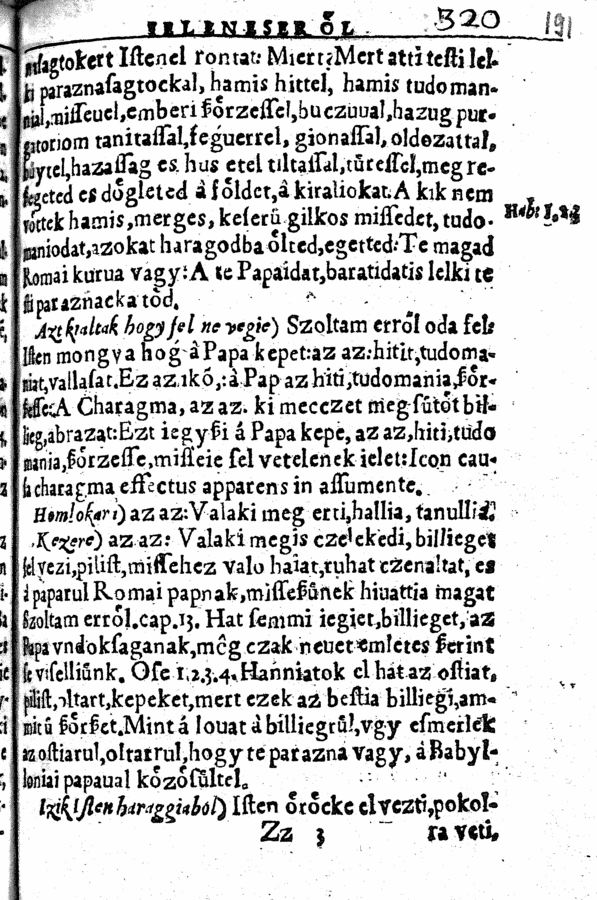 IELENESER ŐL 320 191
nasagtokert Istenel rontat: Miert? Mert atti testi lel-
ki paraznasagtockal, hamis hittel, hamis tudoman-
nial, misseuel, emberi ßőrzessel, buczuual, hazug pur-
gatoriom tanitassal, feguerrel, gionassal, oldozattal,
bỏytel, hazassag es hus etel tiltassal, tűressel, meg re-
ßegeted es dogleted â főldet, â kiraliokat. A kik nem
vőttek hamis, merges, keserű gilkos missedet, tudo-
maniodat, azokat haragodba őlted, egetted: Te magad
Romai kurua vagy: A te Papaidat, baratidatis lelki te
sti paraznackа tőd.
Azt kialtak hogy fel ne vegie) Szoltam erről oda fel:
Isten mongya hog â Papa kepet: az az: hitit, tudoma-
niat, vallasat. Ez az ikő,: â Pap az hiti, tudomania, ßőr-
ßesse: A Charagma, az az. ki mecczet meg sűtőt bil-
lieg, abrazat: Ezt iegyßi á Papa kepe, az az, hiti, tudo
mania, ßőrzesse, misseie fel vetelenek ielet: Icon cau-
sa charagma effectus apparens in assumente.
Homlokari) az az: Valaki meg erti, hallia, tanullia.
Kezere) az az: Valaki megis czelekedi, billieget
fel vezi, pilist, missehez valo haiat, ruhat czenaltat, es
â paparul Romai papnak, misseßűnek hiuattia magat
Szoltam erről. cap. 13. Hat semmi iegiet, billieget, az
Papa vndoksaganak, mēg czak neuet emletes ßerint
se viselliűnk. Ose 1. 2. 3. 4. Hanniatok el hat az ostiat,
pilist, oltart, kepeket, mert ezek az bestia billiegi, am-
mitű ßőrßet. Mint á louat â billiegrűl, vgy esmerlek
az ostiarul, oltarrul, hogy te parazna vagy, â Babyl-
loniai papaual kőzősűltel.
Izik Isten haraggiabol) Isten őrőcke elvezti, pokol-
Zz 3 ra veti,